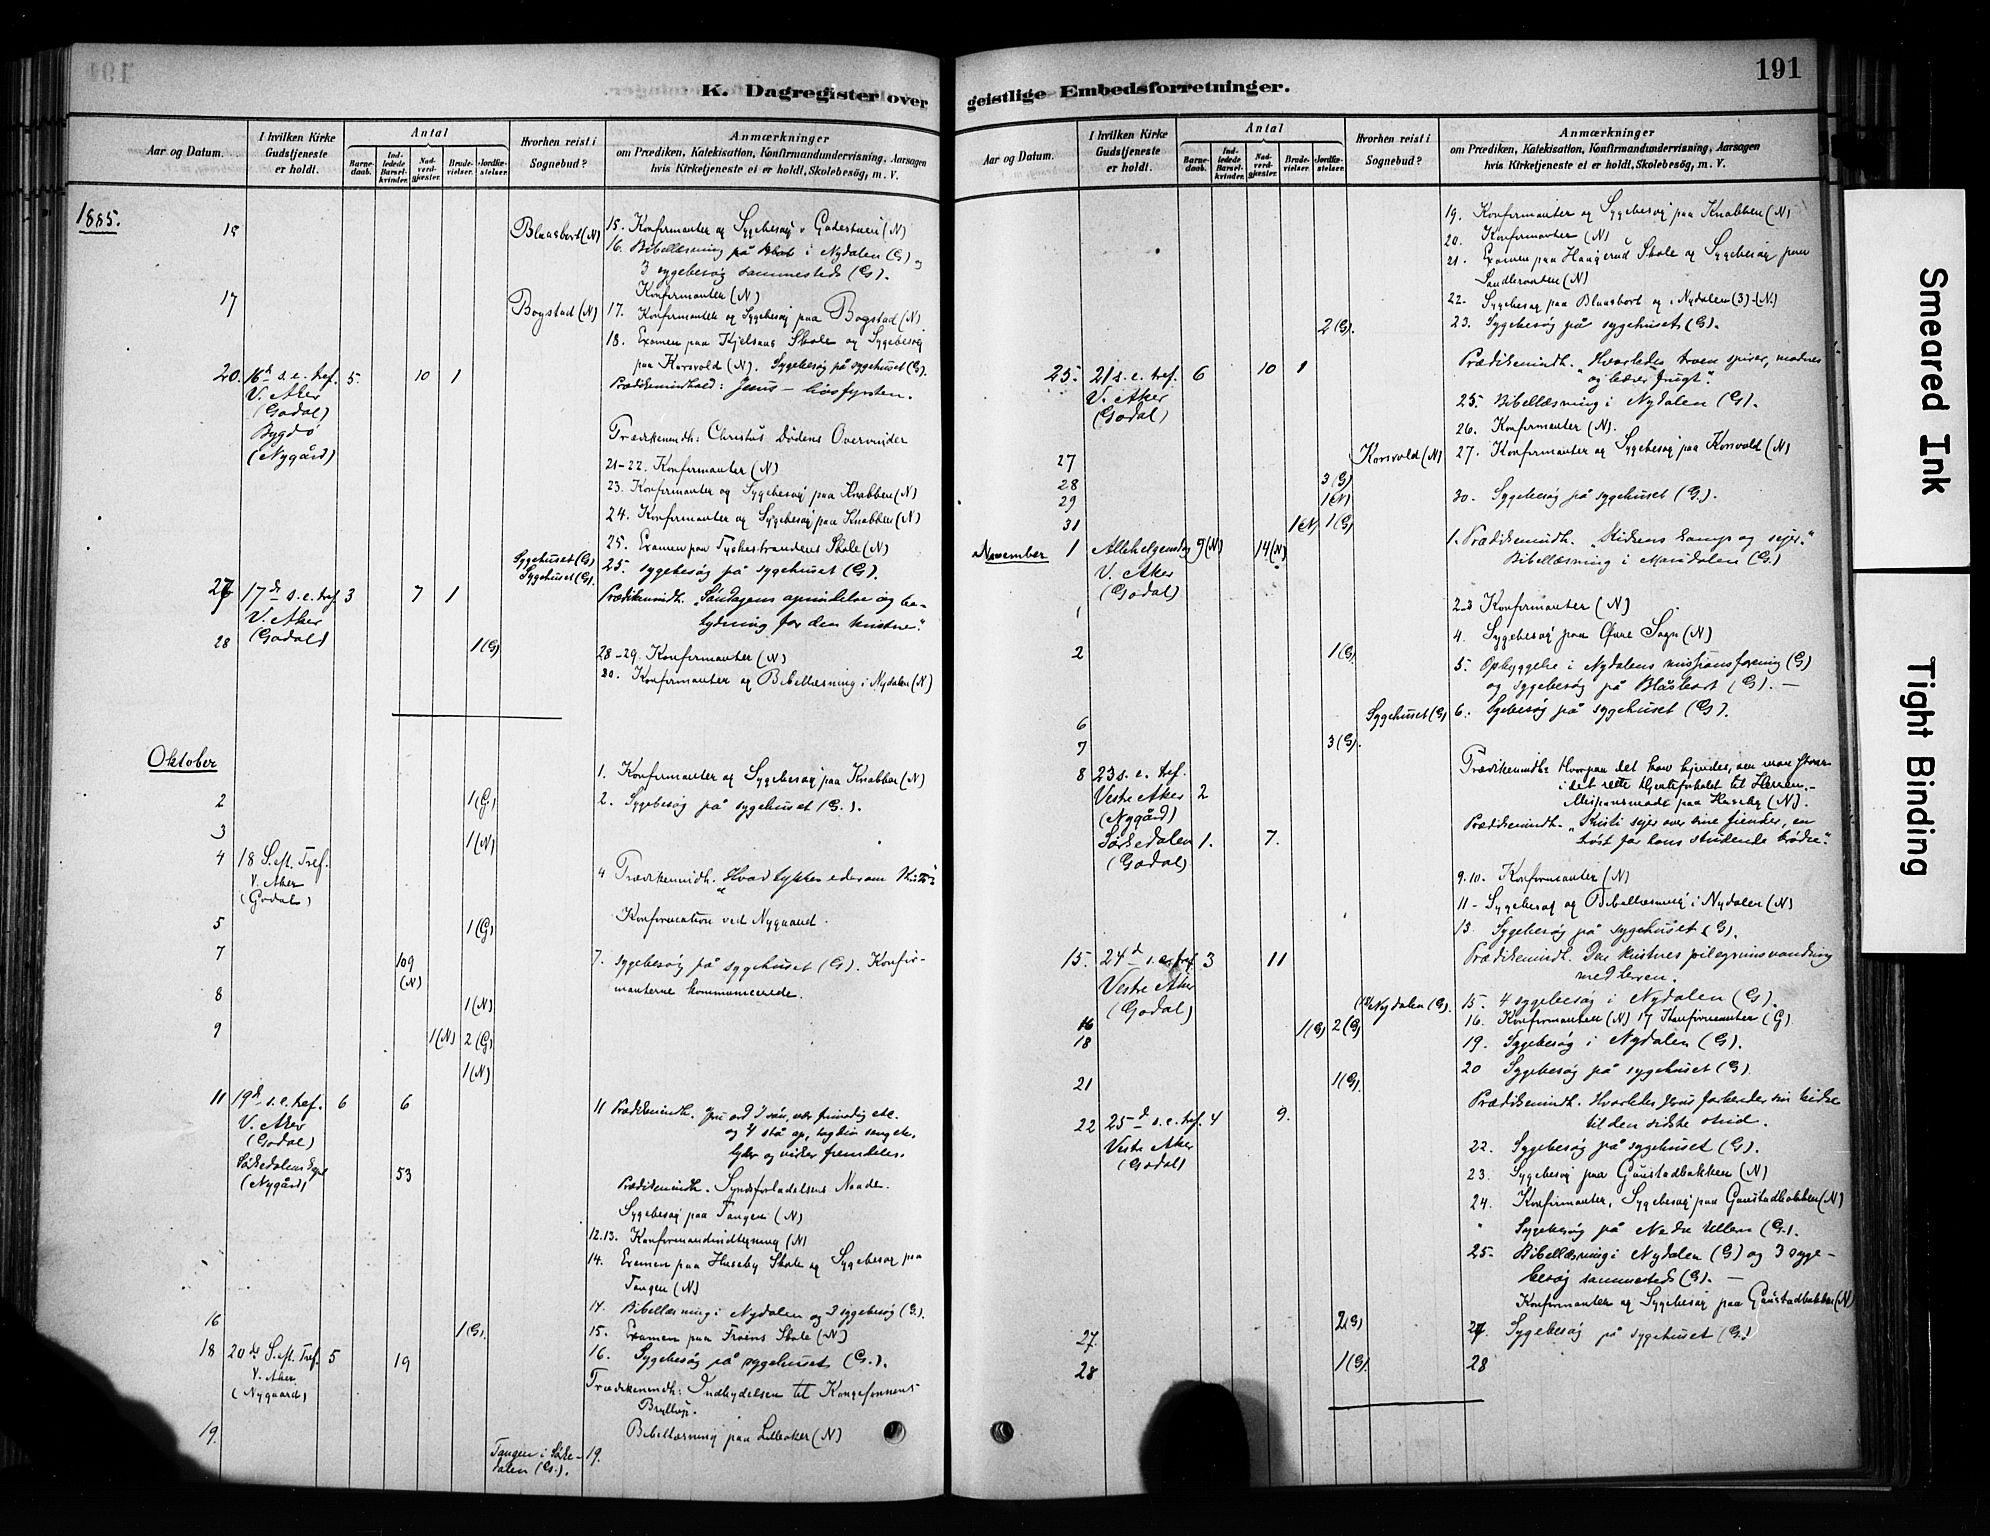 K. Dagregister over
Aar og Datum.
I hvilken Kirke
Gudstjeneste
er holdt.
Antal
Barne-
daab.
Ind-
ledede
Barsel-
kvinder.
Nad-
verd-
gjester.
Brude-
vielser.
Jordfæ-
stelser.
Hvorhen reist i
Sognebud?
Anmærkninger
om Prædiken, Katekisation, Konfirmandundervisning, Aarsagen
hvis Kirketjeneste ei er holdt, Skolebesøg, m. V.
1885.
15 Blaasbort (N) 15. Konfirmanter og Sygebesøg v. (N)
16. Bibellæsning på i Nydalen (G) og
3 sygebesøg sammesteds (G).
Konfirmanter (N)
17 Bogstad (N) 17. Konfirmanter og Sygebesøg paa Bogstad (N)
18. Examen paa Kjelsaas Skole og Sygebesøg
paa Korsvold (N). Sygebesøg på sygehuset (G).
20. 16d s. e. tref. 5. 10 1 Prædikenindhold: Jesus – livsfyrsten.
V. Aker
(Godal)
Bygdø
(Nygård)
Prædikenindh: Christus Dødens Overvinder
21-22. Konfirmanter (N)
23. Konfirmanter og Sygebesøg paa Knabben (N)
24. Konfirmanter og Sygebesøg paa Knabben (N)
25. Examen paa Skole (N)
Sygehuset (G)
Sygehuset (G). 25. sygebesøg på sygehuset (G).
27 17de s. e. tref. 3 7 1 Prædikenindh. „Søndagens oprindelse og be-
V. Aker
tydning for den kristne".
(Godal)
28 1 (G) 28-29. Konfirmanter (N)
30. Konfirmanter og Bibellæsning i Nydalen (N)
Oktober
1. Konfirmanter og Sygebesøg paa Knabben (N)
2 1 (G) 2. Sygebesøg på sygehuset (G.).
3 1 (N)
4 18 S. eft. Tref.
V. Aker
(Godal)
4 Prædikenindh. „Hvad tykkes eder om
5 1 (G) Konfirmation ved Nygaard.
7 109
(N) 7. sygebesøg på sygehuset (G). Konfir-
manterne kommunicerede.
8 1 (N)
9 1 (N) 2 (G)
1 (N)
11 19de s. e. tref. 6 6 11 Prædikenindh.
V. Aker
(Godal)
og stå op, tag din seng etc.
Sørkedalens Kapel
(Nygård) 53
Prædikenindh. Syndsforladelsens Naade.
Sygebesøg paa Tangen (N)
12.13. Konfirmandindtegning (N)
14. Examen paa Huseby Skole og Sygebesøg paa
Tangen (N)
14. Bibellæsning i Nydalen og 3 sygebesøg (G.).
16 1 (G). 15. Examen paa Frøens Skole (N)
16. Sygebesøg på sygehuset (G.).
18 20de S. eft. Tref. 5 19
V. Aker
(Nygaard)
Prædikenindh: Indbydelsen til Kongesønnens
Bryllup.
Bibellæsning paa Lilleaker (N)
19. Tangen i Sørke-
dalen (G.). 19.
geistlige Embedsforretninger.
191
Aar og Datum.
I hvilken Kirke
Gudstjeneste
er holdt.
Antal
Barne-
daab.
Ind-
ledede
Barsel-
kvinder.
Nad-
verd-
gjester.
Brude-
vielser.
Jordfæ-
stelser.
Hvorhen reist i
Sognebud?
Anmærkninger
om Prædiken, Katekisation, Konfirmandundervisning, Aarsagen
hvis Kirketjeneste ei er holdt, Skolebesøg, m. V.
19. Konfirmanter og Sygebesøg paa Knabben (N)
20. Konfirmanter (N)
21. Examen paa Haugerud Skole og Sygebesøg paa
(N)
22. Sygebesøg paa Blaasbort og i Nydalen (3) (N)
2 (G). 23. Sygebesøg på sygehuset (G).
25. 21 s. e. tref. 6 10 1 Prædikenindh. „Hvorledes troen spirer, modnes
V. Aker
og bærer frugt".
(Godal)
25. Bibellæsning i Nydalen (G).
26. Konfirmanter (N).
27 Korsvold (N) 27. Konfirmanter og Sygebesøg paa Korsvold (N)
28 3 (G)
29 1 (N) 30. Sygebesøg på sygehuset (G.).
31 1 (N) 1 (G)
November 1 Allehelgensdag 9 (N) 14 (N) 1. Prædikenindh. „Kirkens kamp og sejer."
V. Aker
Bibellæsning i Maridalen (G.)
(Godal)
1
2-3 Konfirmanter (N)
4. Sygebesøg paa Øvre Sogn (N)
2 1 (G). 5. Opbyggelse i Nydalens missionsforening (G)
og sygebesøg på Blåsbort (G). –
6 Sygehuset (G) 6. Sygebesøg på sygehuset (G).
7 3 (G).
8 23 s. e. tref.
Vestre Aker 2
(Nygård)
Prædikenindh: Hvorpaa det kan kjendes, om man staar
i det rette Hjerteforhold til Herren.–
Missionsmøde paa Huseby (N).
Sørkedalen 1. 7.
(Godal)
Prædikenindh. „Kristi sejer over sine fiender, en
trøst for hans stridende brødre".
9.10. Konfirmanter (N)
11 – Sygebesøg og Bibellæsning i Nydalen (N)
13. Sygebesøg på sygehuset (G).
15. 24d s. e. tref. 3 11 Prædikenindh. Den kristnes pilegrimsvandring
Vestre Aker
(Godal)
Nydalen (G). 15. 4 sygebesøg i Nydalen (G).
16 1 (G) 2 (G) 16. Konfirmanter (N) 17 Konfirmanter (G)
18 19. Sygebesøg i Nydalen (G).
20 Sygebesøg på sygehuset (G).
21 1 (G).
22 25d s. e. tref. 4 9.
Vestre Aker
(Godal)
Prædikenindh. Hvorledes Gud forbereder sin kirke
til den sidste strid.
22. Sygebesøg på sygehuset (G).
23. Sygebesøg paa Gaustadbakken (N)
24. Konfirmanter, Sygebesøg paa Gaustadbakken (N)
" Sygebesøg på Nedre Ullern (G.).
25. Bibellæsning i Nydalen (G) og 3 syge-
besøg sammesteds (G). –
Konfirmanter og Sygebesøg paa Gaustadbakken (N)
27. 2 (G) 27. Sygebesøg på sygehuset (G.)
28 1 (G). 28
Smeared Ink
Tight Binding